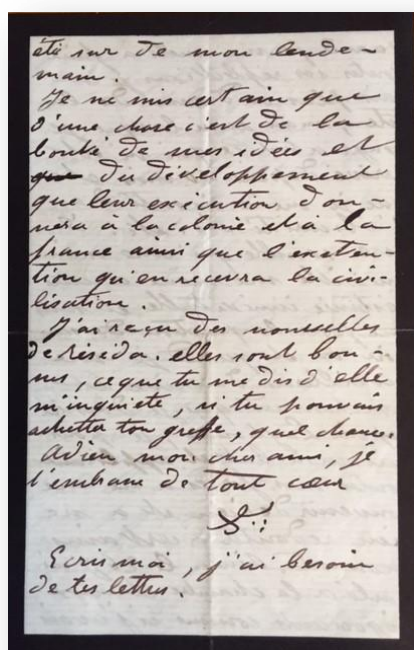 été sur de mon lende-
main.
Je ne suis certain que
d'une chose c'est de la
bonté de mes idées et
que du développement
que leur exécution don-
nera à la colonie et à la
france ainsi que l'exten-
tion qu'en recevra la civi-
lisation.
J'ai reçu des nouvelles
de réséda. elles sont bon-
nes, ce que tu me dis d'elle
m'inquiete, si tu pouvais
achetter ton greffe, quel chance.
Adieu mon cher ami, je
t'embrasse de tout cœur
Ecris moi, j'ai besoin
de tes lettres.